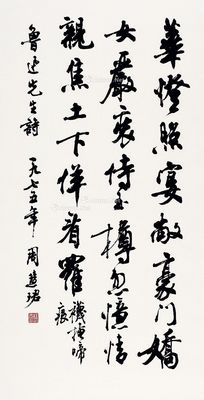 華燈照宴敞豪門嬌
女嚴裝侍玉樽忽憶情
親焦土下佯看羅襪掩啼
痕
魯迅先生詩 一九七五年 周慧珺